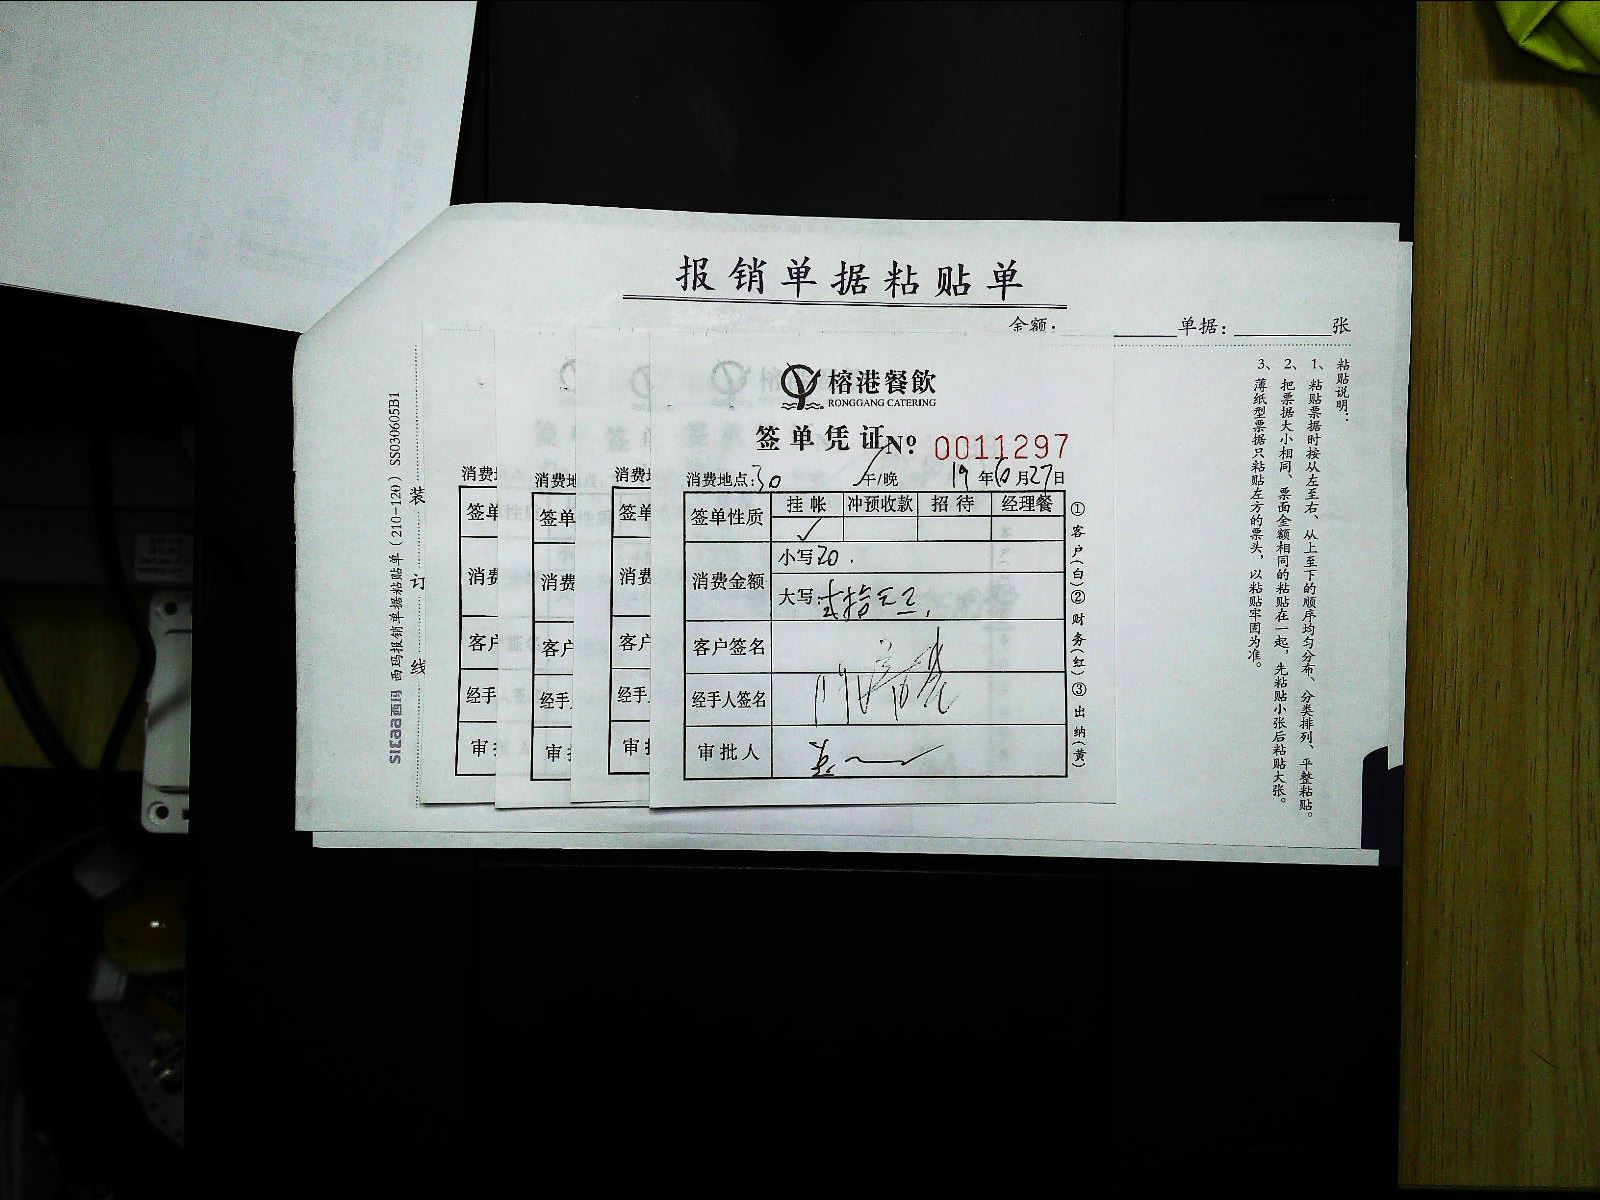 报销单据粘贴单
金额: 单据: 张
粘贴说明:
1、粘贴票据时按从左至右、从上至下的顺序均匀分布、分类排列、平整粘贴。
2、把票据大小相同、票面金额相同的粘贴在一起,先粘贴小张后粘贴大张。
3、薄纸型票据只粘贴左方的票头,以粘贴牢固为准。
sımaa西玛 西玛报销单据粘贴单(210-120)SS030605B1
装 订 线
榕港餐飲
RONGGANG CATERING
签单凭证 Nº 0011297
消费地点:30 午/晚 19年10月27日
签单性质 挂帐 冲预收款 招待 经理餐
✓
消费金额 小写20.
大写:贰拾元正
客户签名
经手人签名
审批人
①客户(白)②财务(红)③出纳(黄)
消费地
签单
消费
客户
经手
审批
消费地
签单
消费
客户
经手
审批
消费地
签单
消费
客户
经手
审批